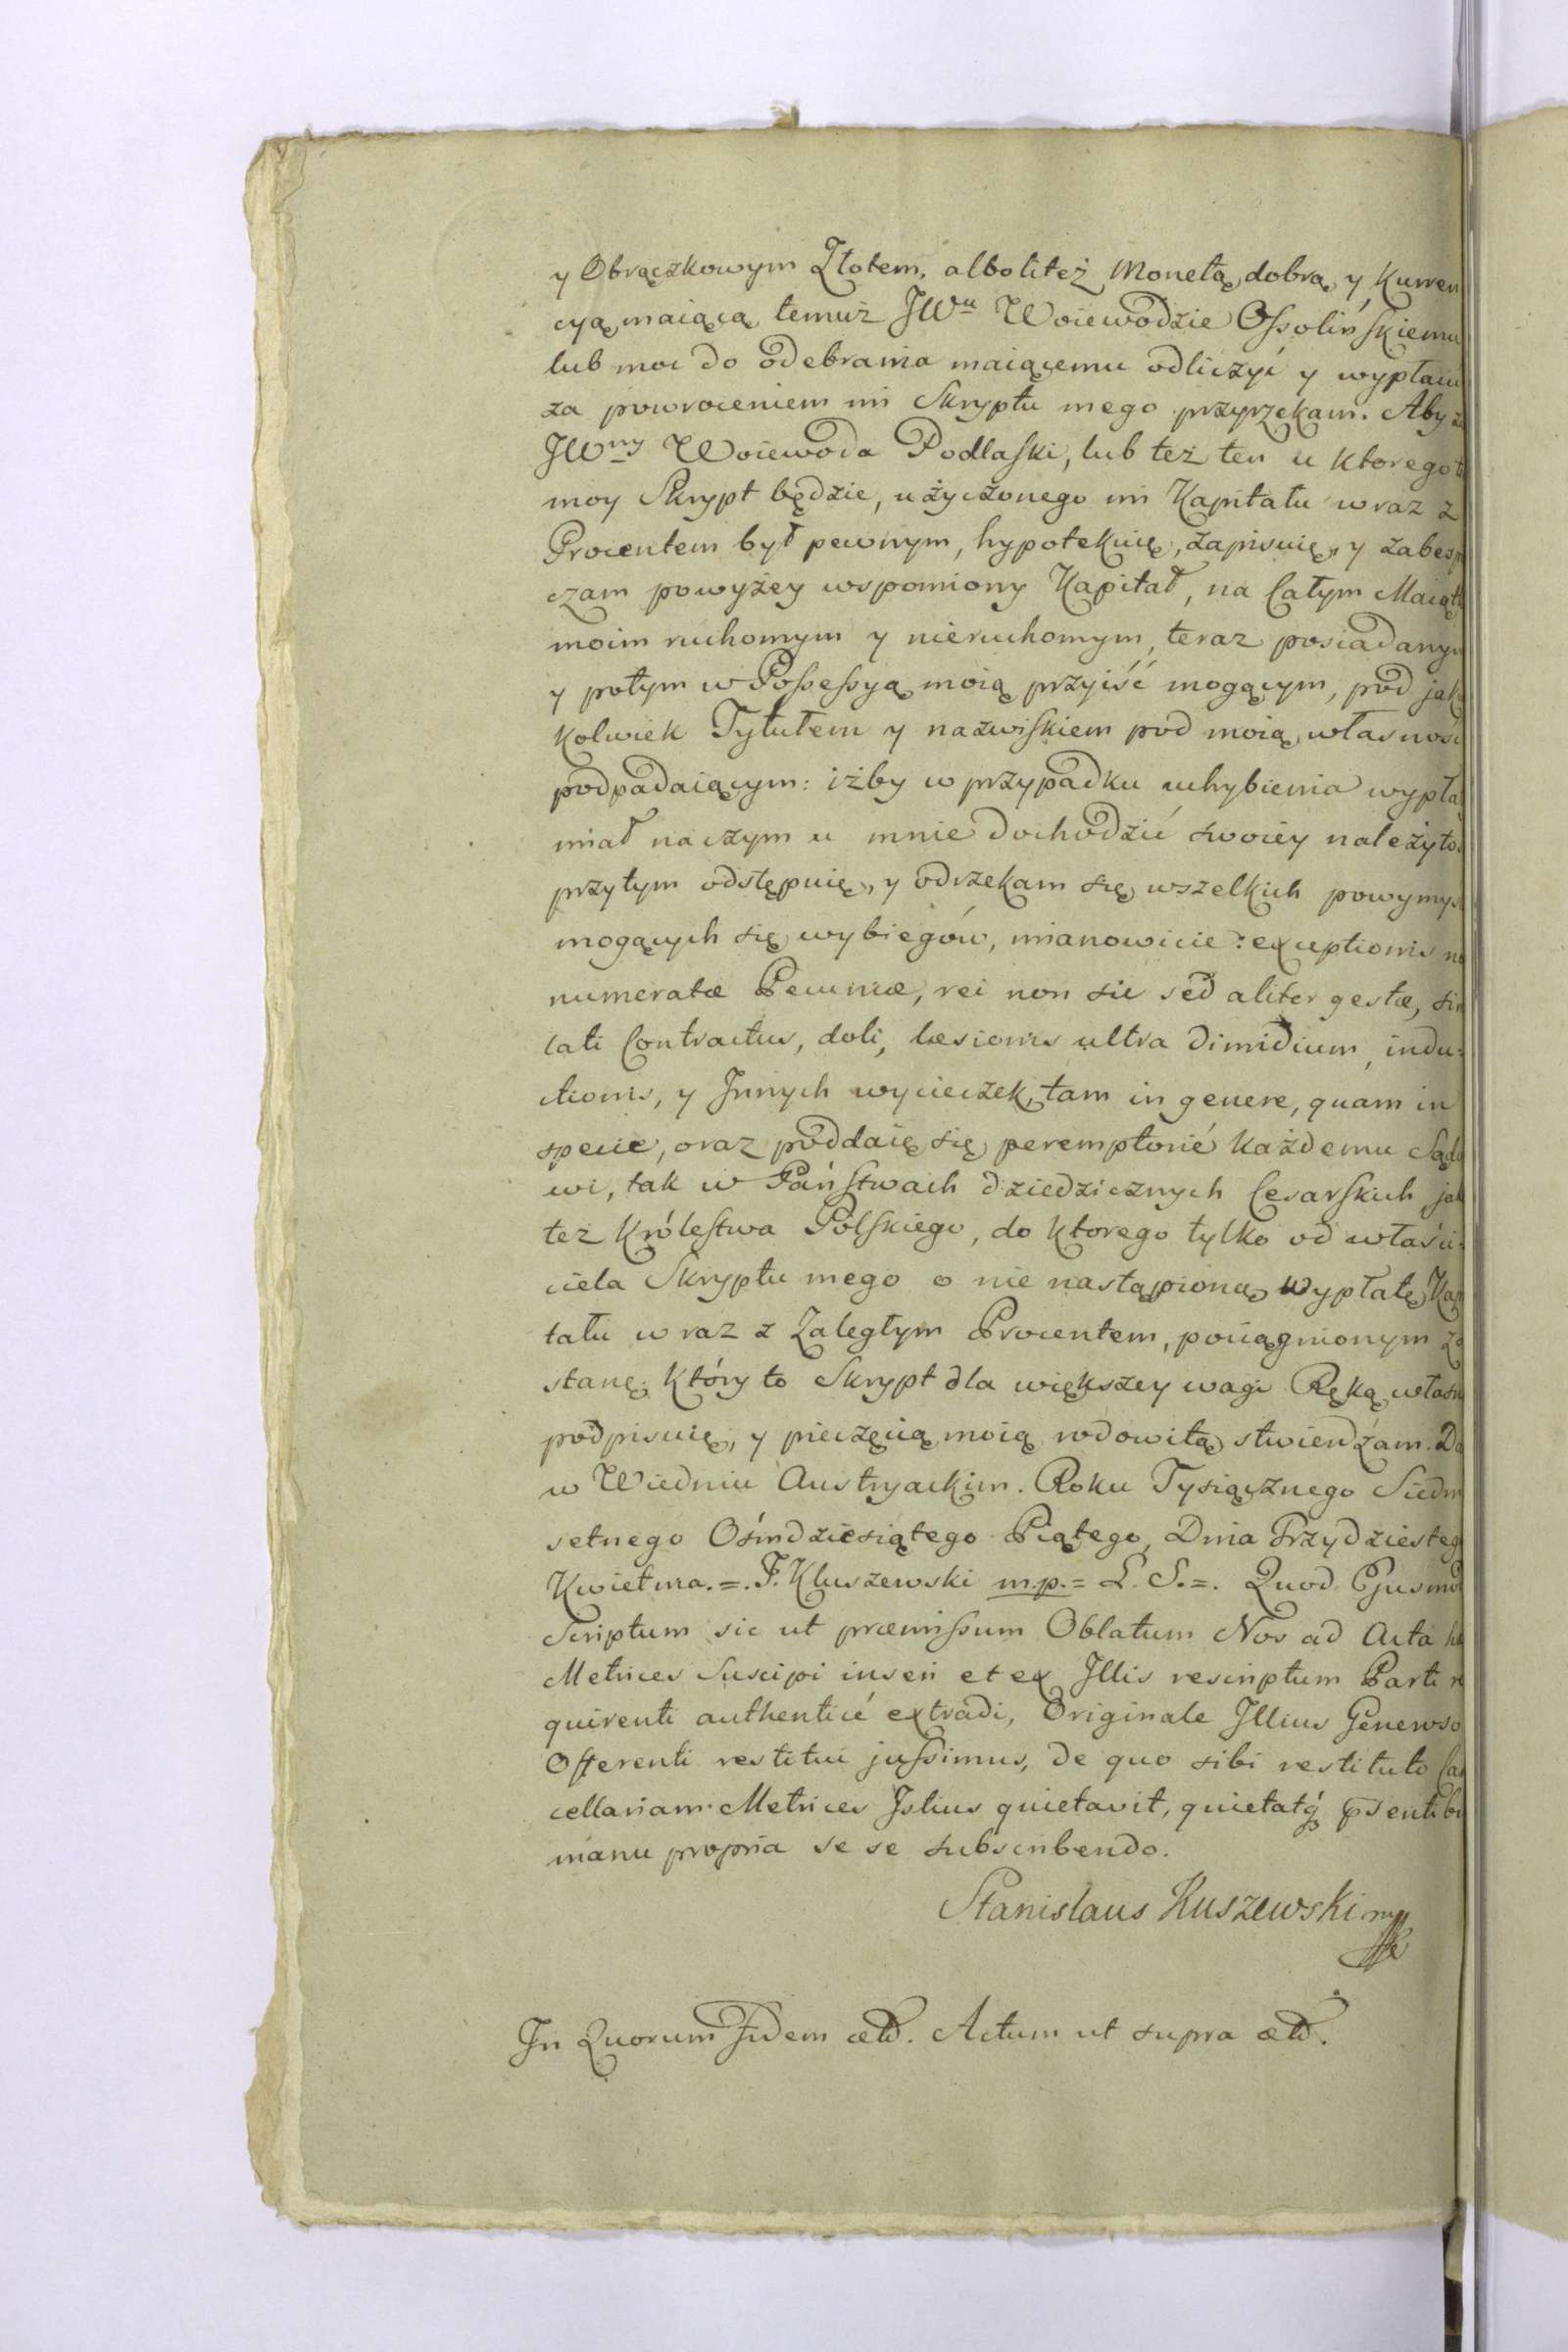 y Obrączkowym Złotem, albolitez Monetą dobrą y Kurren
cyą maiącą temuż JWu Woiewodzie Ossolińskiemu
lub moc do odebrania maiącemu odliczyć y wypłacić
za powroceniem mi Skryptu mego przyrzekam. Aby za
JWny Woiewoda Podlaski, lub też ten u ktorego t
moy Skrypt będzie, użyczonego mi Kapitału wraz z
Procentem był pewnym, hypotekuię, zapisuię, y zabesp
czam powyżey wspomiony Kapitał, na Całym Maiątk
moim ruchomym y nieruchomym, teraz posiadanym
y potym w Possessyą moią przyiść mogącym, pod jak
kolwiek Tytułem y nazwiskiem pod moią własność
podpadaiącym: iżby w przypadku uchybienia wypła
miał na czym u mnie dochodzić swoiey należyto
przytym odstępuię, y odrzekam się wszelkich powymys
mogących się wybiegów, mianowicie: exceptionis no
numeratæ Pecuniæ, rei non sic sed aliter gestæ, sim
lati Contractus, doli, læsionis ultra dimidium, indu:
ctionis, y Jnnych wycieczek, tam in genere, quam in
specie, oraz poddaię się peremptorié każdemu Sądo
wi, tak w Państwach dziedzicznych Cesarskich jak
też Królestwa Polskiego, do ktorego tylko od właści:
ciela Skryptu mego o nie nastąpioną wypłatę Kap
tału wraz z Zaległym Procentem, pociągnionym zo
stanę. Który to Skrypt dla większey wagi Ręką własn
podpisuię, y pieczęcią moią rodowitą stwierdzam. Da
w Wiedniu Austryackim. Roku Tysiącznego Siedm
setnego Ośmdziesiątego Piątego, Dnia Trzydziesteg
Kwietnia. =. F. Kluszewski m.p. = L. S. =. Quod Ejusmod
Scriptum sic ut præmissum Oblatum Nos ad Acta ha
Metrices Suscipi inseri et ex Jllis rescriptum Parti re
quirenti authenticé extradi, Originale Jllius Generoso
Offerenti restitui jussimus, de quo sibi restituto Can
cellariam Metrices Jstius quietavit, quietatq pSentibu
manu propria se se subscribendo.
Stanislaus Kuszewski mp
Jn Quorum Fidem ætd. Actum ut supra ætd.